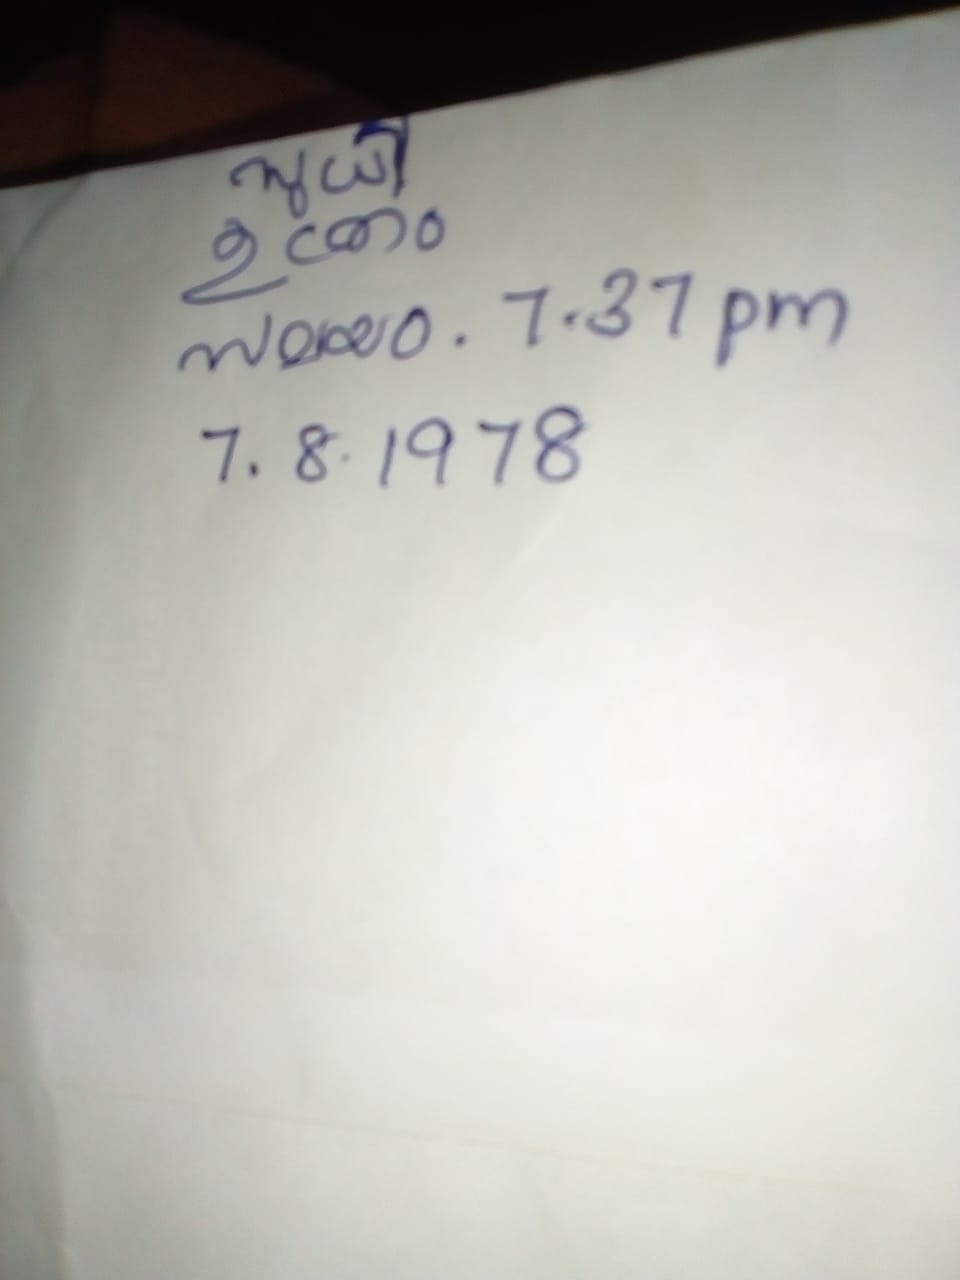 സുധീ
ഉത്രം
സമയം. 7.37 pm
7. 8. 1978